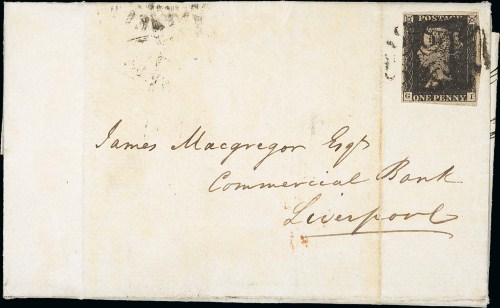 POSTAGE
G I
ONE PENNY
James Macgregor Esqr
Commercial Bank
Liverpool